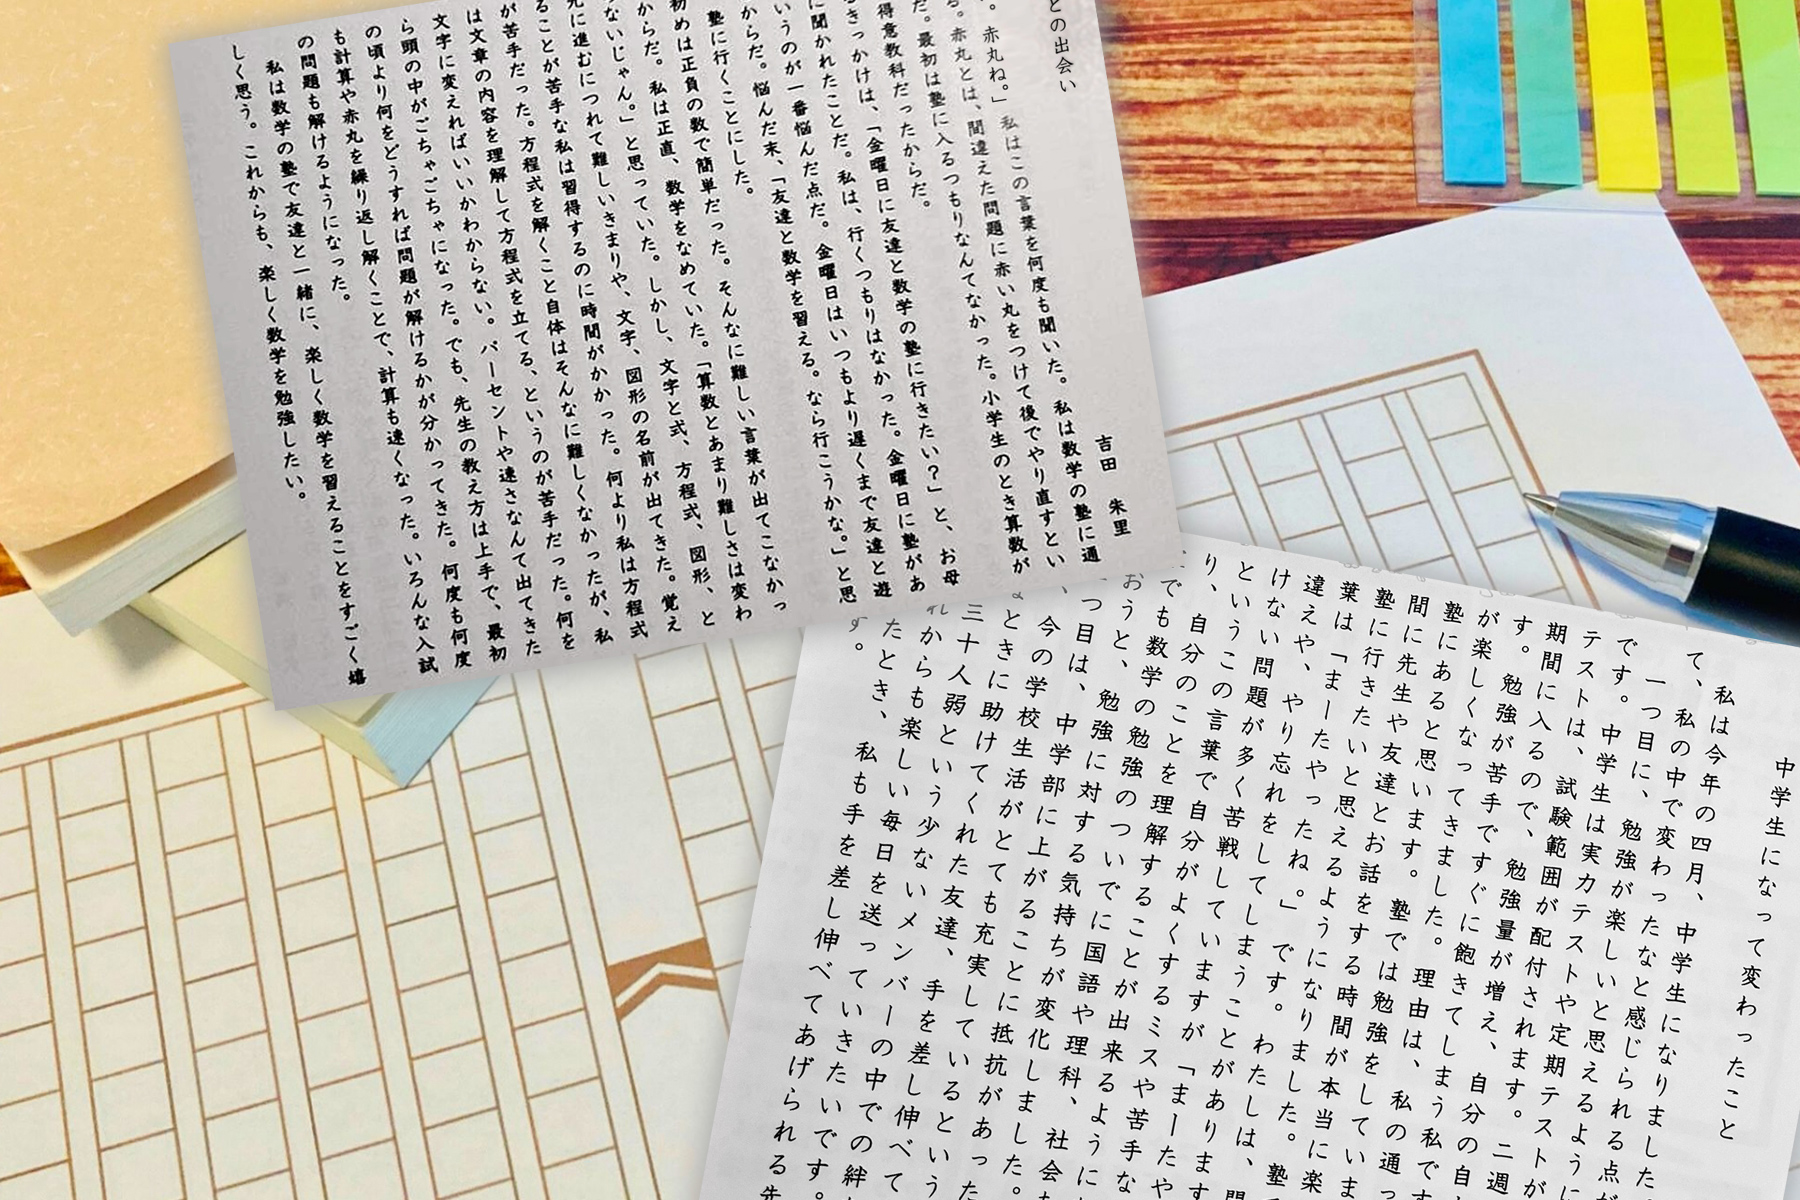 との出会い
吉田 朱里
。赤丸ね。」私はこの言葉を何度も聞いた。私は数学の塾に通
る。赤丸とは、間違えた問題に赤い丸をつけて後でやり直すとい
だ。最初は塾に入るつもりなんてなかった。小学生のとき算数が
得意教科だったからだ。
るきっかけは、「金曜日に友達と数学の塾に行きたい?」と、お母
に聞かれたことだ。私は、行くつもりはなかった。金曜日に塾があ
いうのが一番悩んだ点だ。金曜日はいつもより遅くまで友達と遊
からだ。悩んだ末、「友達と数学を習える。なら行こうかな。」と思
塾に行くことにした。
初めは正負の数で簡単だった。そんなに難しい言葉が出てこなかっ
からだ。私は正直、数学をなめていた。「算数とあまり難しさは変わ
ないじゃん。」と思っていた。しかし、文字と式、方程式、図形、と
先に進むにつれて難しいきまりや、文字、図形の名前が出てきた。覚え
ることが苦手な私は習得するのに時間がかかった。何より私は方程式
が苦手だった。方程式を解くこと自体はそんなに難しくなかったが、私
は文章の内容を理解して方程式を立てる、というのが苦手だった。何を
文字に変えればいいかわからない。パーセントや速さなんて出てきた
ら頭の中がごちゃごちゃになった。でも、先生の教え方は上手で、最初
の頃より何をどうすれば問題が解けるかが分かってきた。何度も何度
も計算や赤丸を繰り返し解くことで、計算も速くなった。いろんな入試
の問題も解けるようになった。
私は数学の塾で友達と一緒に、楽しく数学を習えることをすごく嬉
しく思う。これからも、楽しく数学を勉強したい。
中学生になって変わったこと
私は今年の四月、中学生になりました
て、私の中で変わったなと感じられる点が
一つ目に、勉強が楽しいと思えるように
です。中学生は実力テストや定期テストが
テストは、試験範囲が配付されます。二週
期間に入るので、勉強量が増え、自分の自
す。勉強が苦手ですぐに飽きてしまう私です
が楽しくなってきました。理由は、私の通っ
塾にあると思います。塾では勉強をしていま
間に先生や友達とお話をする時間が本当に楽
塾に行きたいと思えるようになりました。塾で
葉は「まーたやったね。」です。わたしは、
違えや、やり忘れをしてしまうことがあります
けない問題が多く苦戦していますが「まーたや
というこの言葉で自分がよくするミスや苦手な
り、自分のことを理解することが出来るように
でも数学の勉強のついでに国語や理科、社会も
おうと、勉強に対する気持ちが変化しました。
つ目は、中学部に上がることに抵抗があった
、今の学校生活がとても充実しているという
なときに助けてくれた友達、手を差し伸べて
三十人弱という少ないメンバーの中での絆
れからも楽しい毎日を送っていきたいです。
たとき、私も手を差し伸べてあげられる先
す。